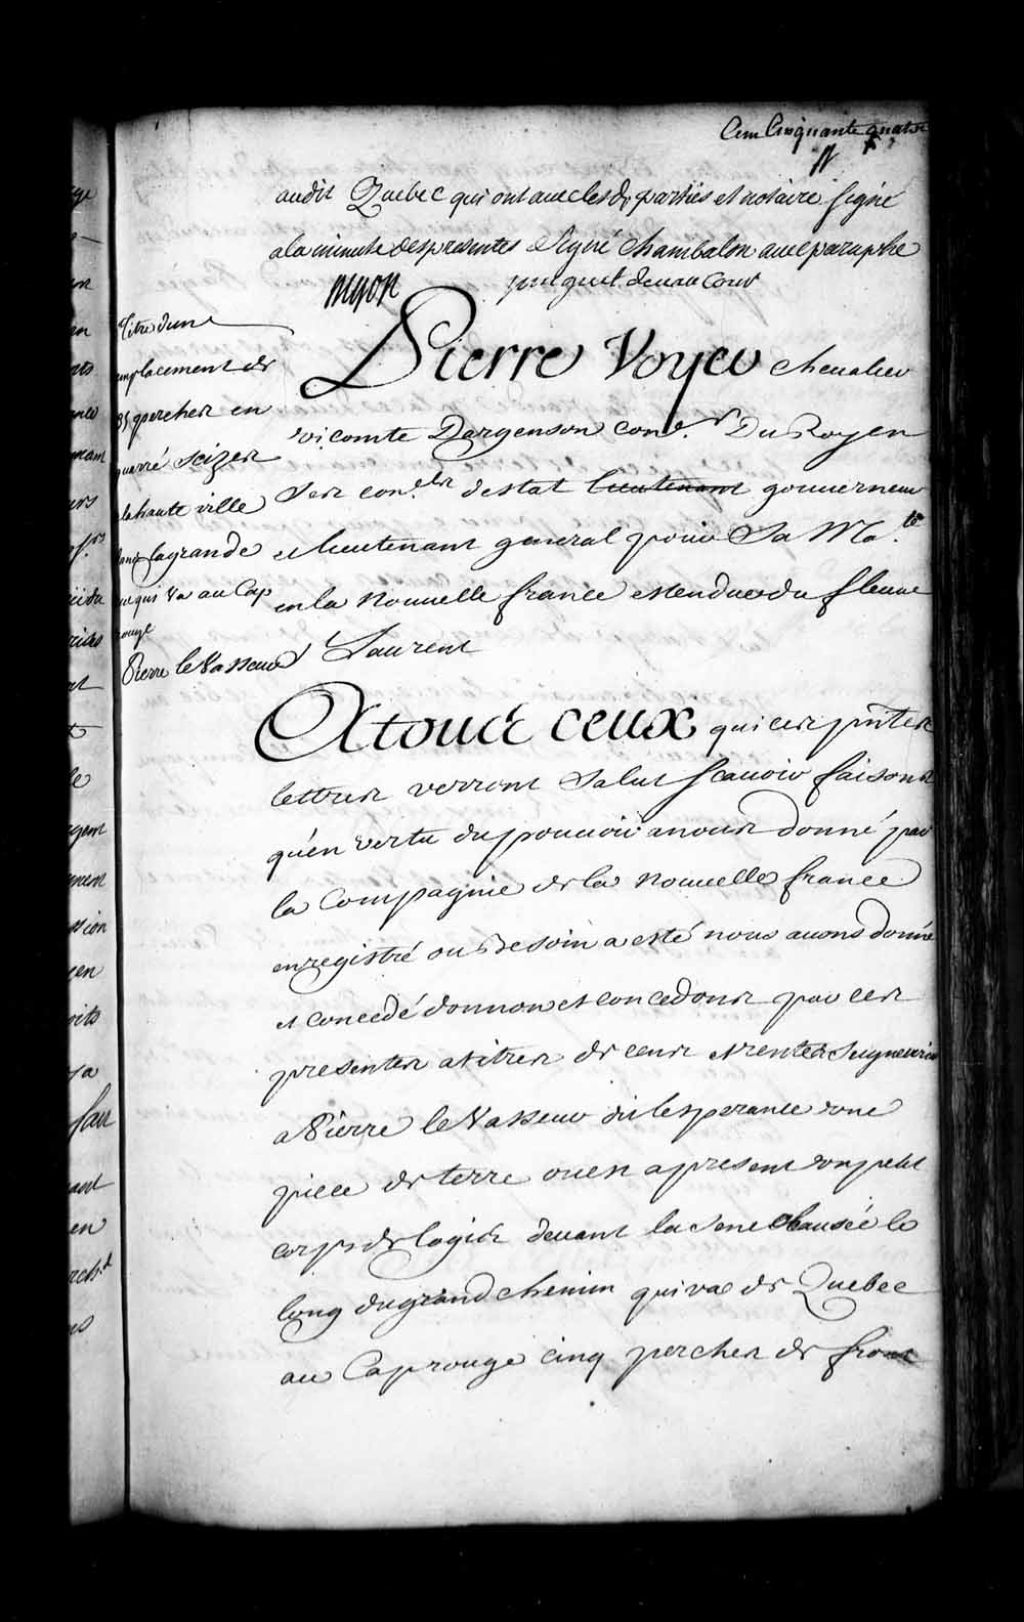 Cent Cinquante quatre
audit Quebec qui ont avec lesd. parties et notaire signé
a la minute des presentes Signé Chambalon avec paraphe
Pierre Voyer chevalier
vicomte Dargenson con.er Du Roy en
Ses con.els destat lieutenant gouverneur
et lieutenant general pour Sa Ma.té
en la Nouvelle france estendue du fleuve
St Laurent
Titre d'un
emplacement de
25 perches en
quarré scizes
a la haute ville
lagrande
rue qui va au Cap
rouge
Pierre le Vasseur
A tous ceux qui ces pntes
lettres verront Salut scavoir faisons
qu'en vertu du pouvoir a nous donné par
la Compagnie de la Nouvelle france
enregistré ou Besoin a esté nous avons donné
et concedé donnons et concedons par ces
presentes a titres de cens et rentes Seigneuria
a Pierre le Vasseur dit lesperance une
piece de terre ou est a present son petit
corps de logis devant la Sene chausée le
long du grand chemin qui va de Quebec
au Cap rouge cinq perches de front